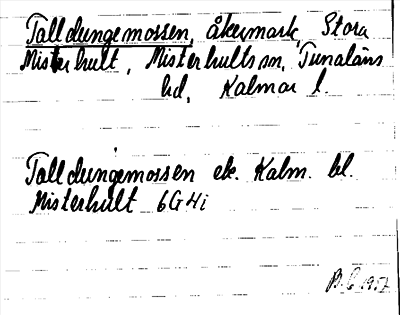 Talldungemossen, åkermark, Stora
Misterhult, Misterhults sn, Tunaläns
hd, Kalmar l.
Talldungemossen ek. Kalm. bl.
Misterhult 6G4i
B.C 1957